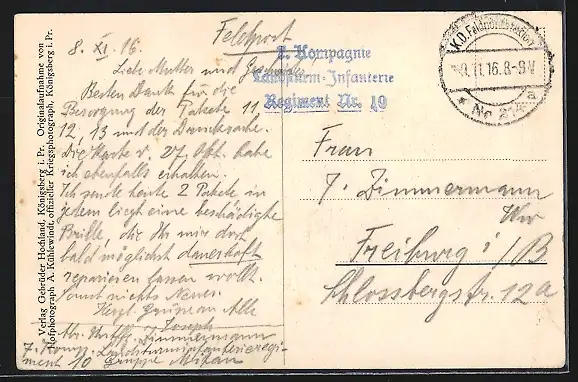 Feldpost
8. XI. 16.
Liebe Mutter und
Besten Dank für die
Besorgung der Pakete 11
12, 13 und der Drucksache.
Die Karte v. 27. Okt. habe
ich ebenfalls erhalten.
Ich sende heute 2 Pakete in
jedem liegt eine beschädigte
Brille, die Ihr mir dort
bald möglichst dauerhaft
reparieren lassen wollt.
Sonst nichts Neues.
Herzl. Grüße an Alle
Joseph
Abs. Zimmermann
7. Komp. Landsturminfanterieregi-
ment 10 Gruppe Mitau
Verlag Gebrüder Hochland, Königsberg i. Pr. Originalaufnahme von
Hofphotograph A. Kühlewindt, offizieller Kriegsphotograph, Königsberg i. Pr.
7. Kompagnie
Landsturm-Infanterie
Regiment Nr. 10
K.D. Feldpoststation
9.11.16.8-9V
a
* No 214
Frau
J. Zimmermann
Wwe
Freiburg i/B
Schlossbergstr. 12a